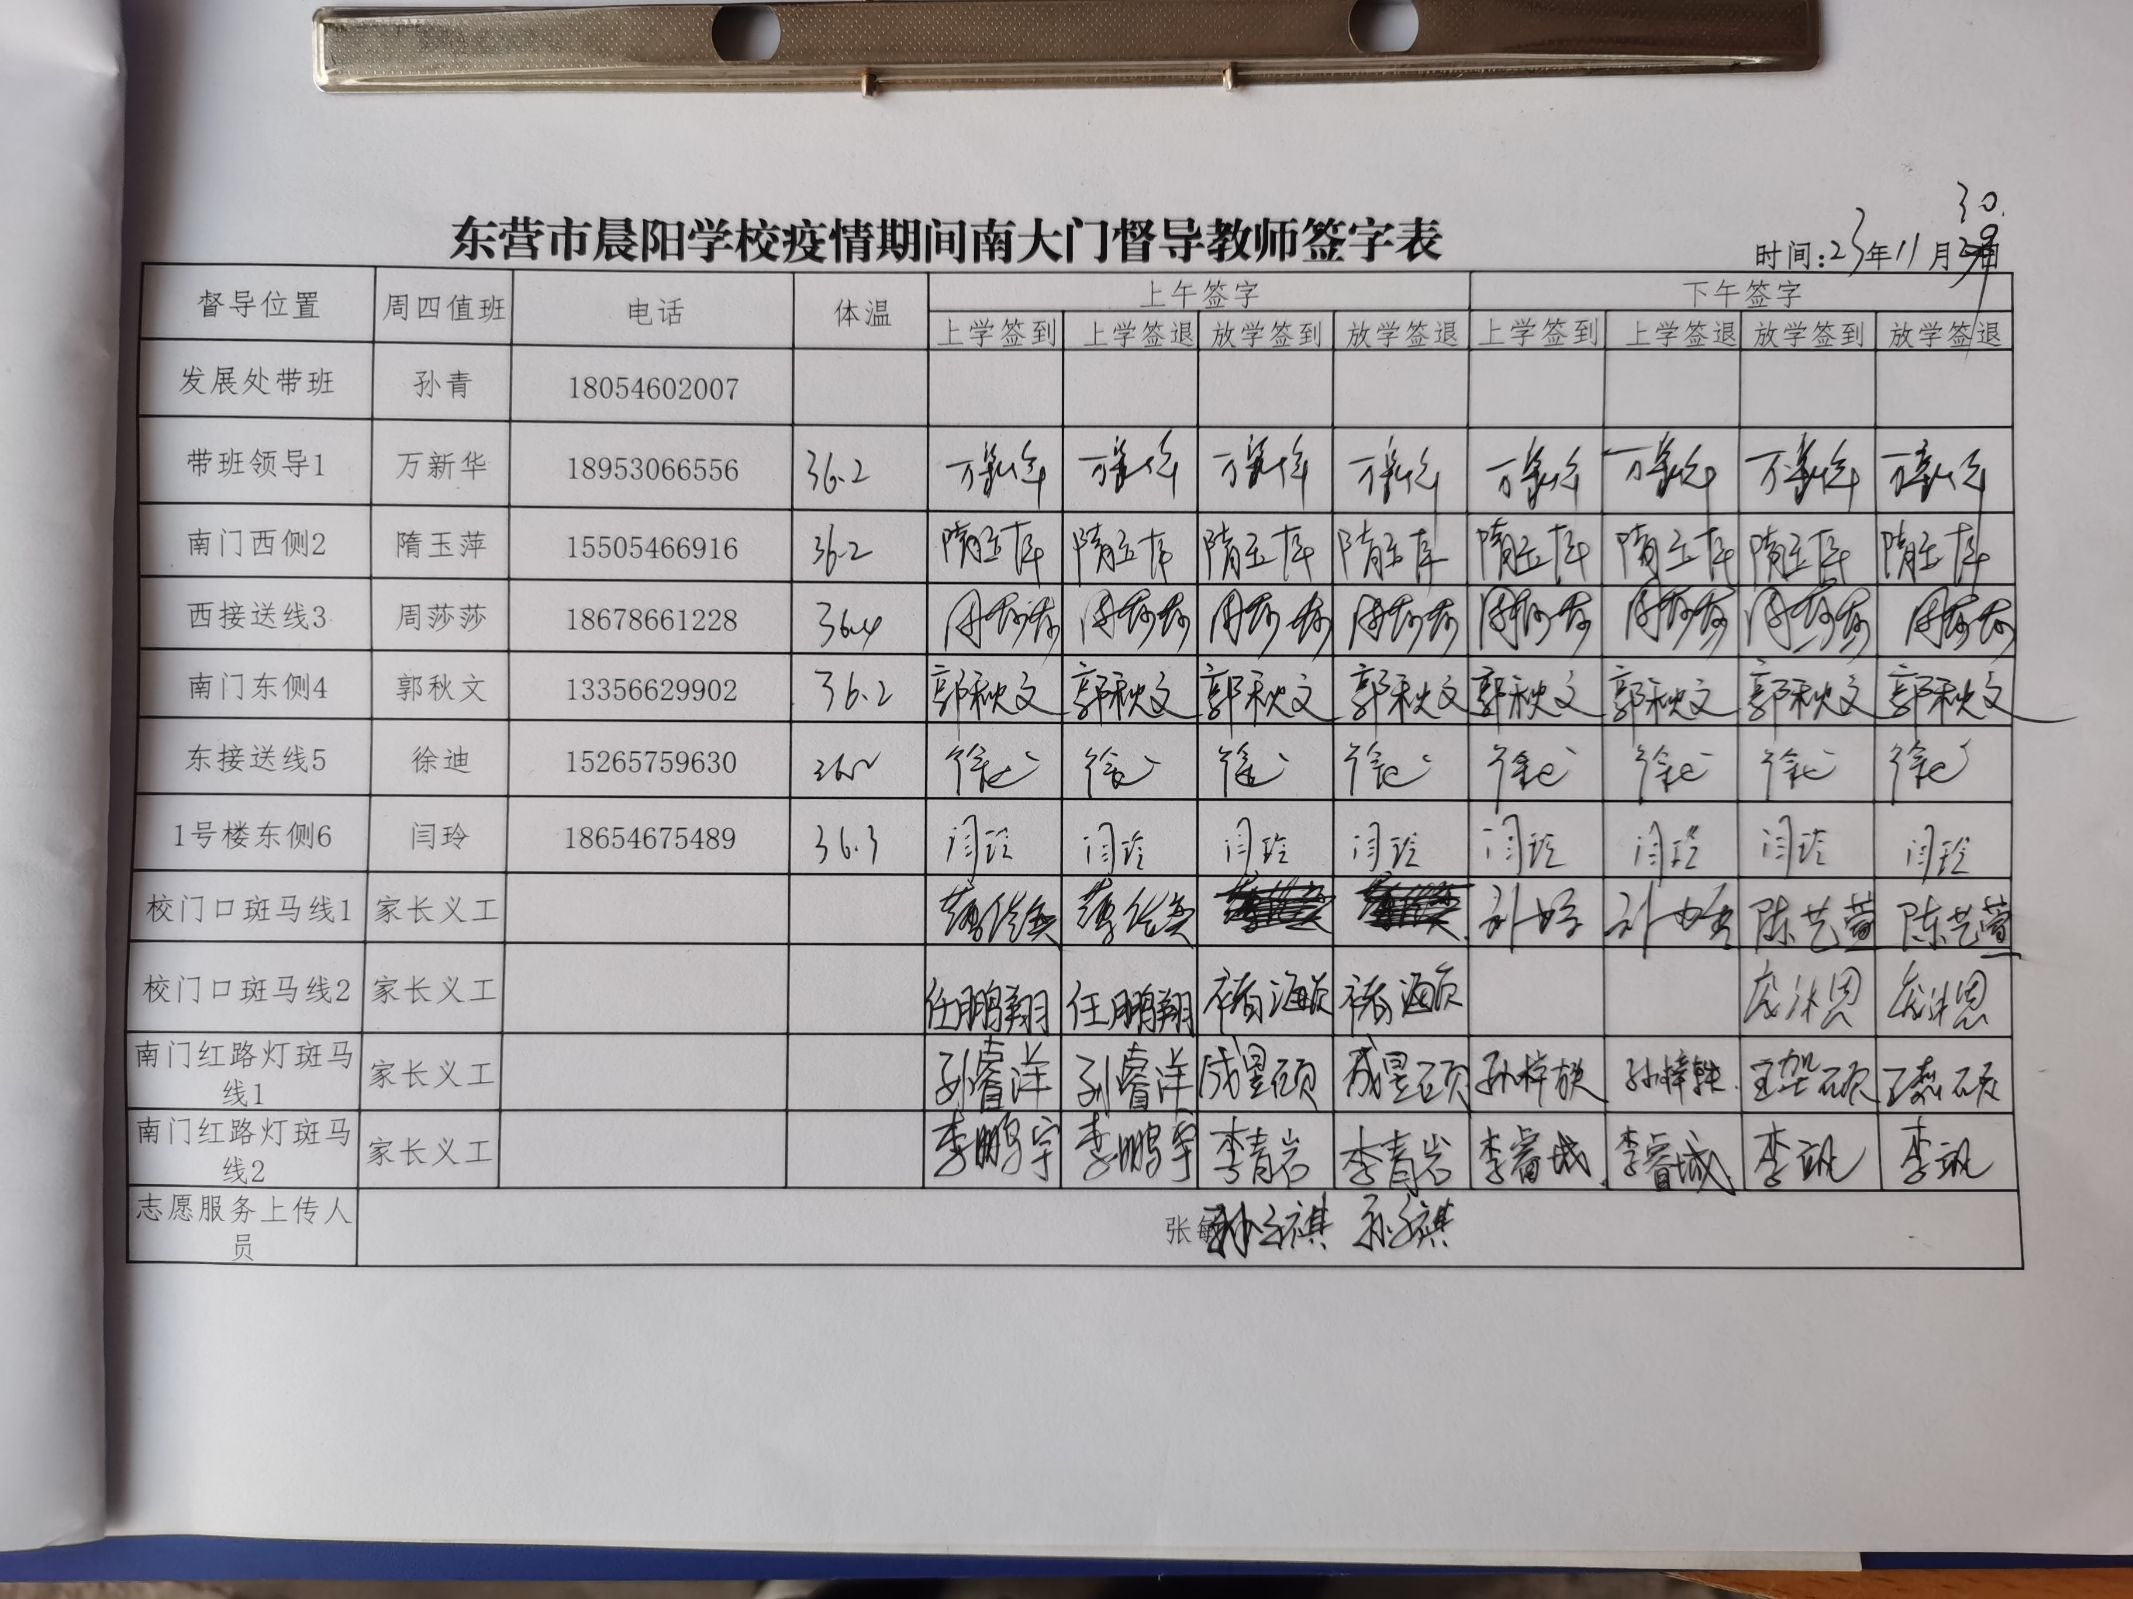 东营市晨阳学校疫情期间南大门督导教师签字表
30.
时间:23年11月29日
督导位置 周四值班 电话 体温 上午签字 下午签字
上学签到 上学签退 放学签到 放学签退 上学签到 上学签退 放学签到 放学签退
发展处带班 孙青 18054602007
带班领导1 万新华 18953066556 36.2 万新华 万新华 万新华 万新华 万新华 万新华 万新华 万新华
南门西侧2 隋玉萍 15505466916 36.2 隋玉萍 隋玉萍 隋玉萍 隋玉萍 隋玉萍 隋玉萍 隋玉萍 隋玉萍
西接送线3 周莎莎 18678661228 36.4 周莎莎 周莎莎 周莎莎 周莎莎 周莎莎 周莎莎 周莎莎 周莎莎
南门东侧4 郭秋文 13356629902 36.2 郭秋文 郭秋文 郭秋文 郭秋文 郭秋文 郭秋文 郭秋文 郭秋文
东接送线5 徐迪 15265759630 36.2 徐迪 徐迪 徐迪 徐迪 徐迪 徐迪 徐迪 徐迪
1号楼东侧6 闫玲 18654675489 36.3 闫玲 闫玲 闫玲 闫玲 闫玲 闫玲 闫玲 闫玲
校门口斑马线1 家长义工 陈艺萱 陈艺萱
校门口斑马线2 家长义工 任鹏翔 任鹏翔
南门红路灯斑马
线1 家长义工 孙睿洋 孙睿洋 成昱硕 成昱硕
南门红路灯斑马
线2 家长义工 李鹏宇 李鹏宇 李青岩 李青岩 李睿城 李睿城
志愿服务上传人
员 张敏 孙子祺 孙子祺